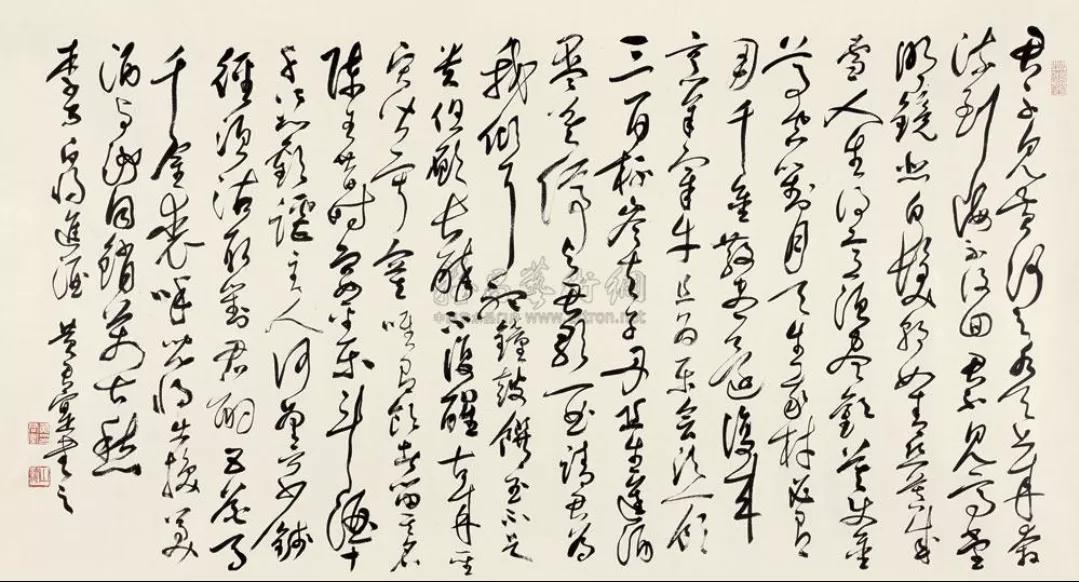 君不見黃河之水天上來奔
流到海不復回君不見高堂
明鏡悲白髮朝如青絲暮成
雪人生得意須盡歡莫使金
尊空對月天生我材必有
用千金散盡還復來
烹羊宰牛且為樂會須一飲
三百杯岑夫子丹丘生進酒
君莫停與君歌一曲請君為
我傾耳聽鐘鼓饌玉不足
貴但願長醉不復醒古來聖
賢皆寂寞唯有飲者留其名
陳王昔時宴平樂斗酒十
千恣歡謔主人何為言少錢
徑須沽取對君酌五花馬
千金裘呼兒將出換美
酒與爾同銷萬古愁
李白將進酒 黃書之
www.artron.net